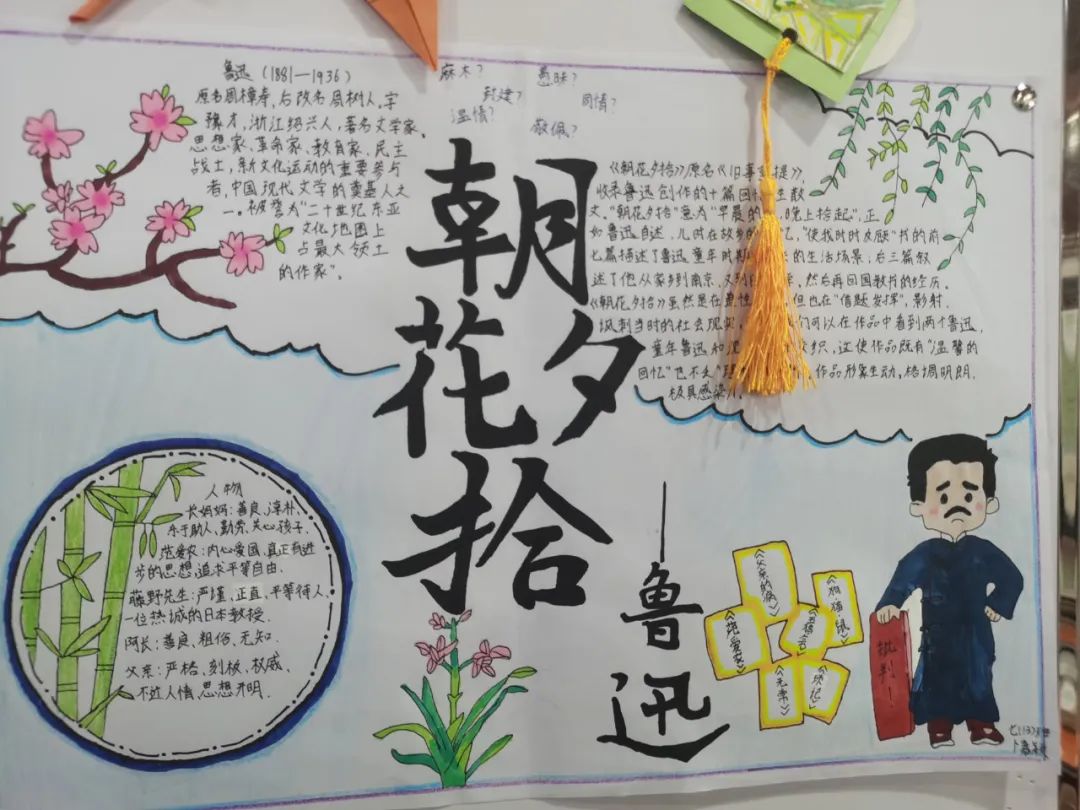 鲁迅（1881—1936）
原名周樟寿，后改名周树人，字
豫才，浙江绍兴人，著名文学家、
思想家、革命家、教育家、民主
战士，新文化运动的重要参与
者，中国现代文学的奠基人之
一。被誉为“二十世纪东亚
文化地图上
占最大领土
的作家”。
麻木？
愚昧？
封建？
同情？
温情？
敬佩？
朝花夕拾
——鲁迅
《朝花夕拾》原名《旧事 提》，
收录鲁迅创作的十篇回忆 散
文，“朝花夕拾”意为“早晨的 晚上拾起”，正
如鲁迅自述，儿时在故乡的 忆，“使我时时反顾”书的前
七篇描述了鲁迅童年时期 的生活场景；后三篇叙
述了他从家乡到南京，又到 然后再回国教书的经历。
《朝花夕拾》虽然是在 但也在“借题发挥”，影射、
讽刺当时的社会现实。 们可以在作品中看到两个鲁迅，
童年鲁迅和 交织，这使作品既有“温馨的
回忆”也不乏“理 作品形象生动，格调明朗，
极具感染力。
人物
长妈妈：善良、淳朴、
乐于助人、勤劳、关心孩子。
范爱农：内心爱国，真正有进
步的思想，追求平等自由。
藤野先生：严谨、正直、平等待人，
一位热诚的日本教授。
阿长：善良、粗俗、无知。
父亲：严格、刻板、权威、
不近人情、思想开明。
《父亲的病》
《狗·猫·鼠》
《范爱农》
《五猖会》
《无常》
《琐记》
批判！